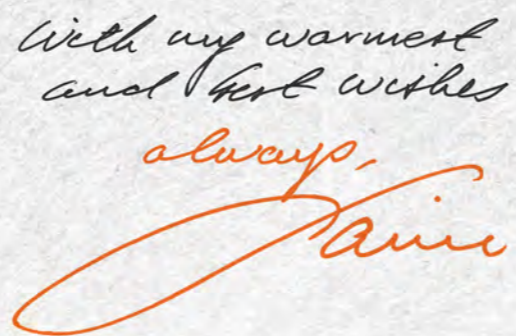 with my warmest
and best wishes
always,